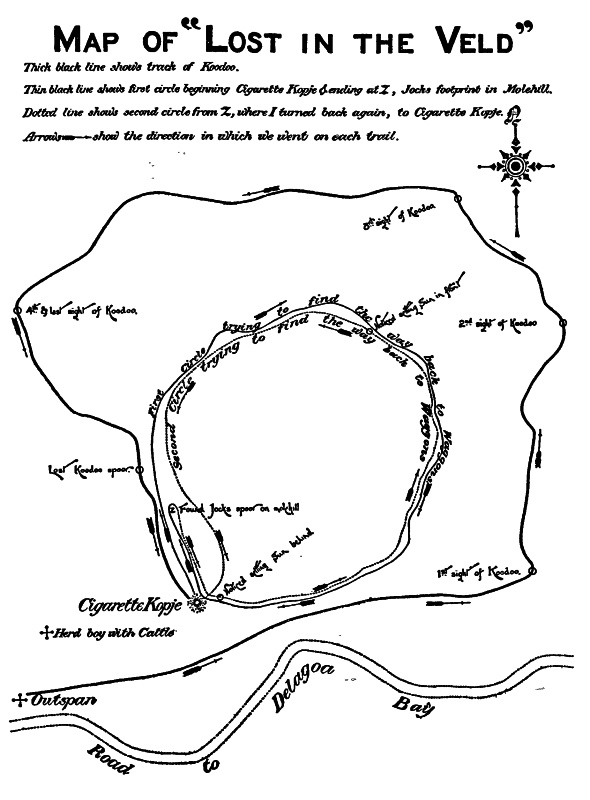 MAP OF “LOST IN THE VELD”
Thick black line shows track of Koodoo.
Thin black line shows first circle beginning Cigarette Kopje & ending at Z, Jocks footprint in Molehill.
Dotted line shows second circle from Z, where I turned back again, to Cigarette Kopje.
Arrows show the direction in which we went on each trail.
3rd sight of Koodoo
4th & last sight of Koodoo.
2nd sight of Koodoo
First Circle trying to find the way back to Waggons
Second Circle trying to find the way back to Waggons
Sun in
Lost Koodoo spoor
Z Found Jocks spoor on molehill
Sun behind
1st sight of Koodoo.
Cigarette Kopje
Herd boy with Cattle
Outspan
Road to Delagoa Bay